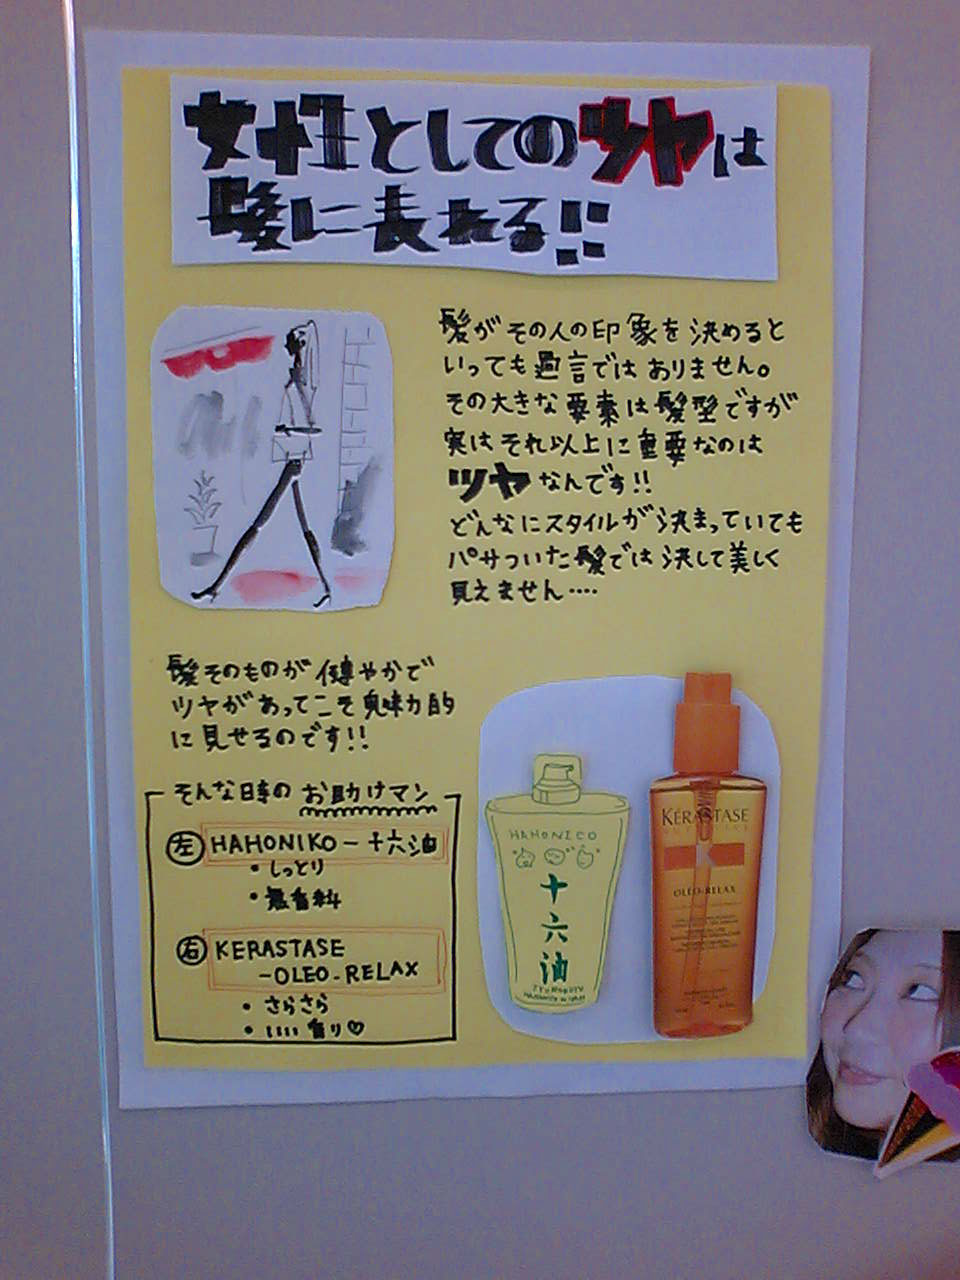 女性としてのツヤは
髪に表れる!!
髪がその人の印象を決めると
いっても過言ではありません。
その大きな要素は髪型ですが
実はそれ以上に重要なのは
ツヤなんです!!
どんなにスタイルが決まっていても
パサついた髪では決して美しく
見えません‥‥
髪そのものが健やかで
ツヤがあってこそ魅力的
に見せるのです!!
そんな時のお助けマン
左 HAHONIKO-十六油
・しっとり
・無香料
右 KERASTASE
-OLEO-RELAX
・さらさら
・いい香り♡
HAHONICO
十六油
KÉRASTASE
K
OLÉO-RELAX